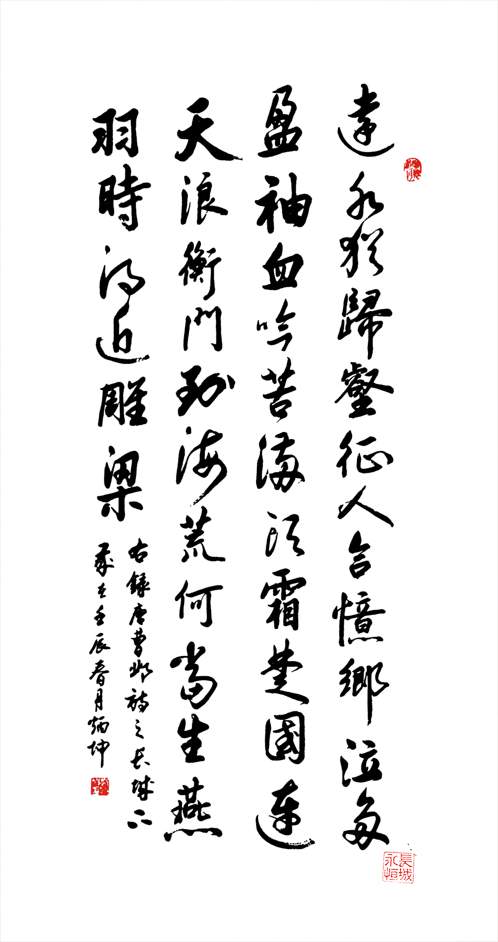 遠水猶歸壑征人合憶鄉泣多
盈袖血吟苦滿頭霜楚國連
天浪衡門到海荒何當生燕
羽時得近雕梁
右錄唐曹鄴詩之長城下
歲在壬辰春月炳坤
長城
永恒